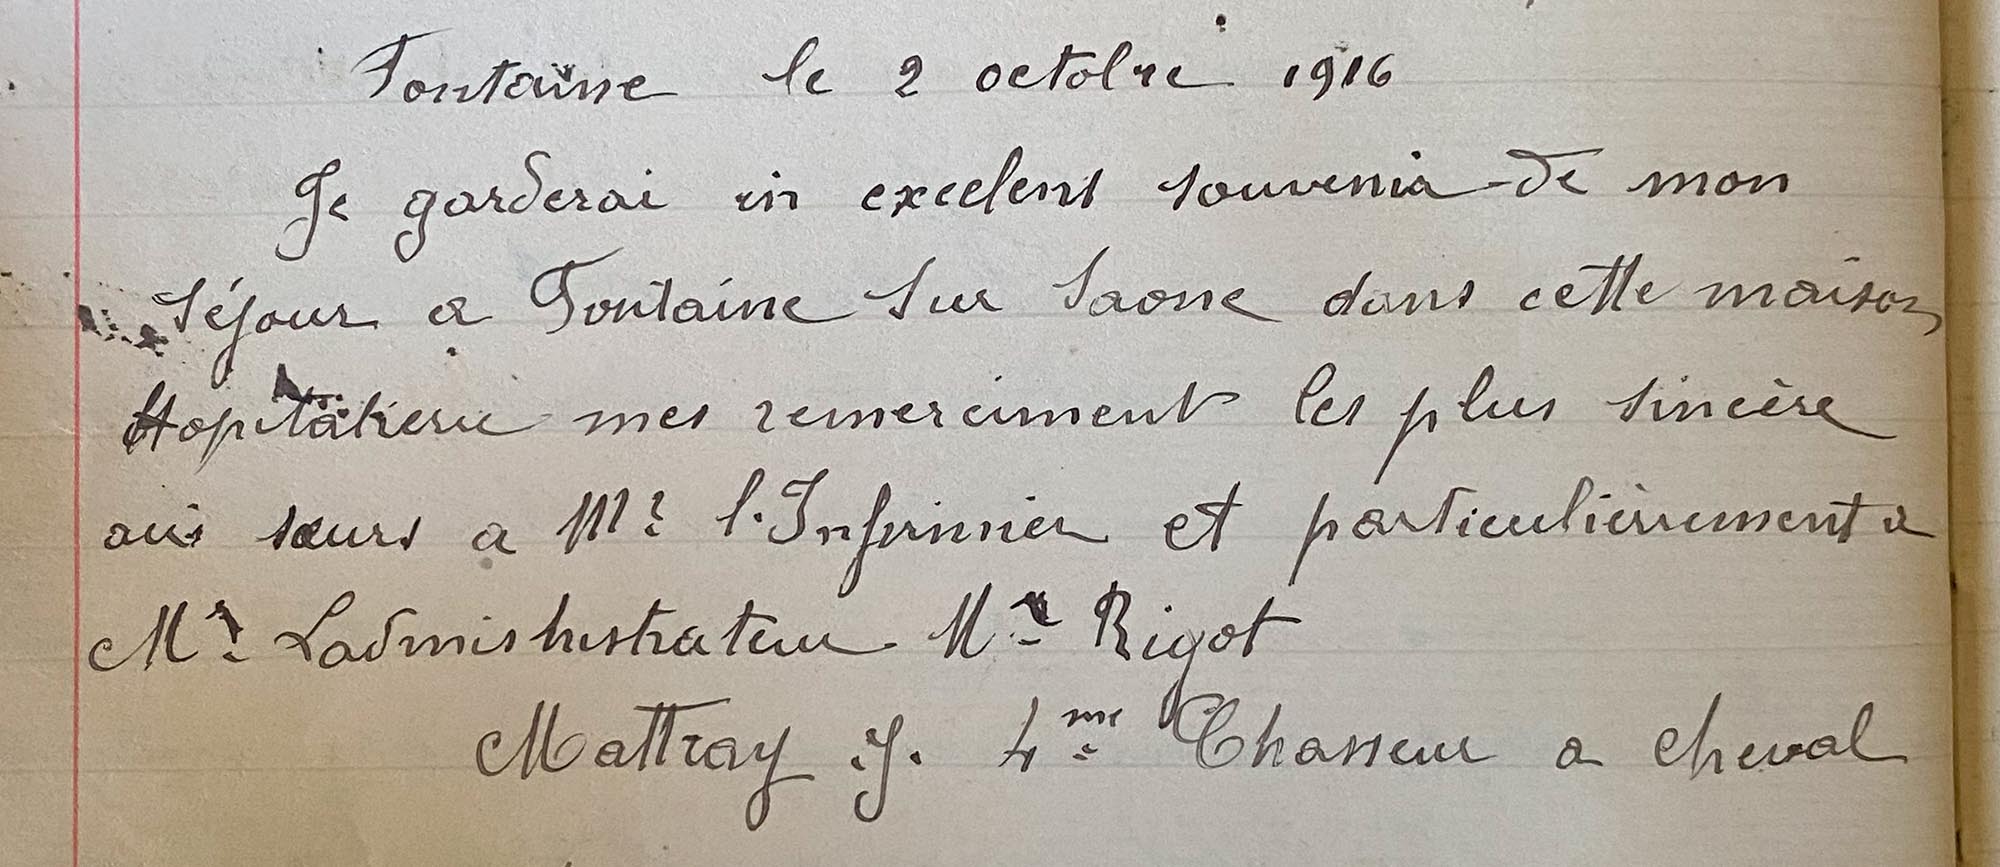 Fontaine le 2 octobre 1916
Je garderai un excelent souvenir de mon
séjour a Fontaine sur Saone dans cette maison
Hopitalière mes remerciment les plus sincère
aux sœurs a Mr l'Infirmier et particulièrrement a
Mr Ladministrateur Mr Rigot
Mattray J. 4me Chasseur a cheval